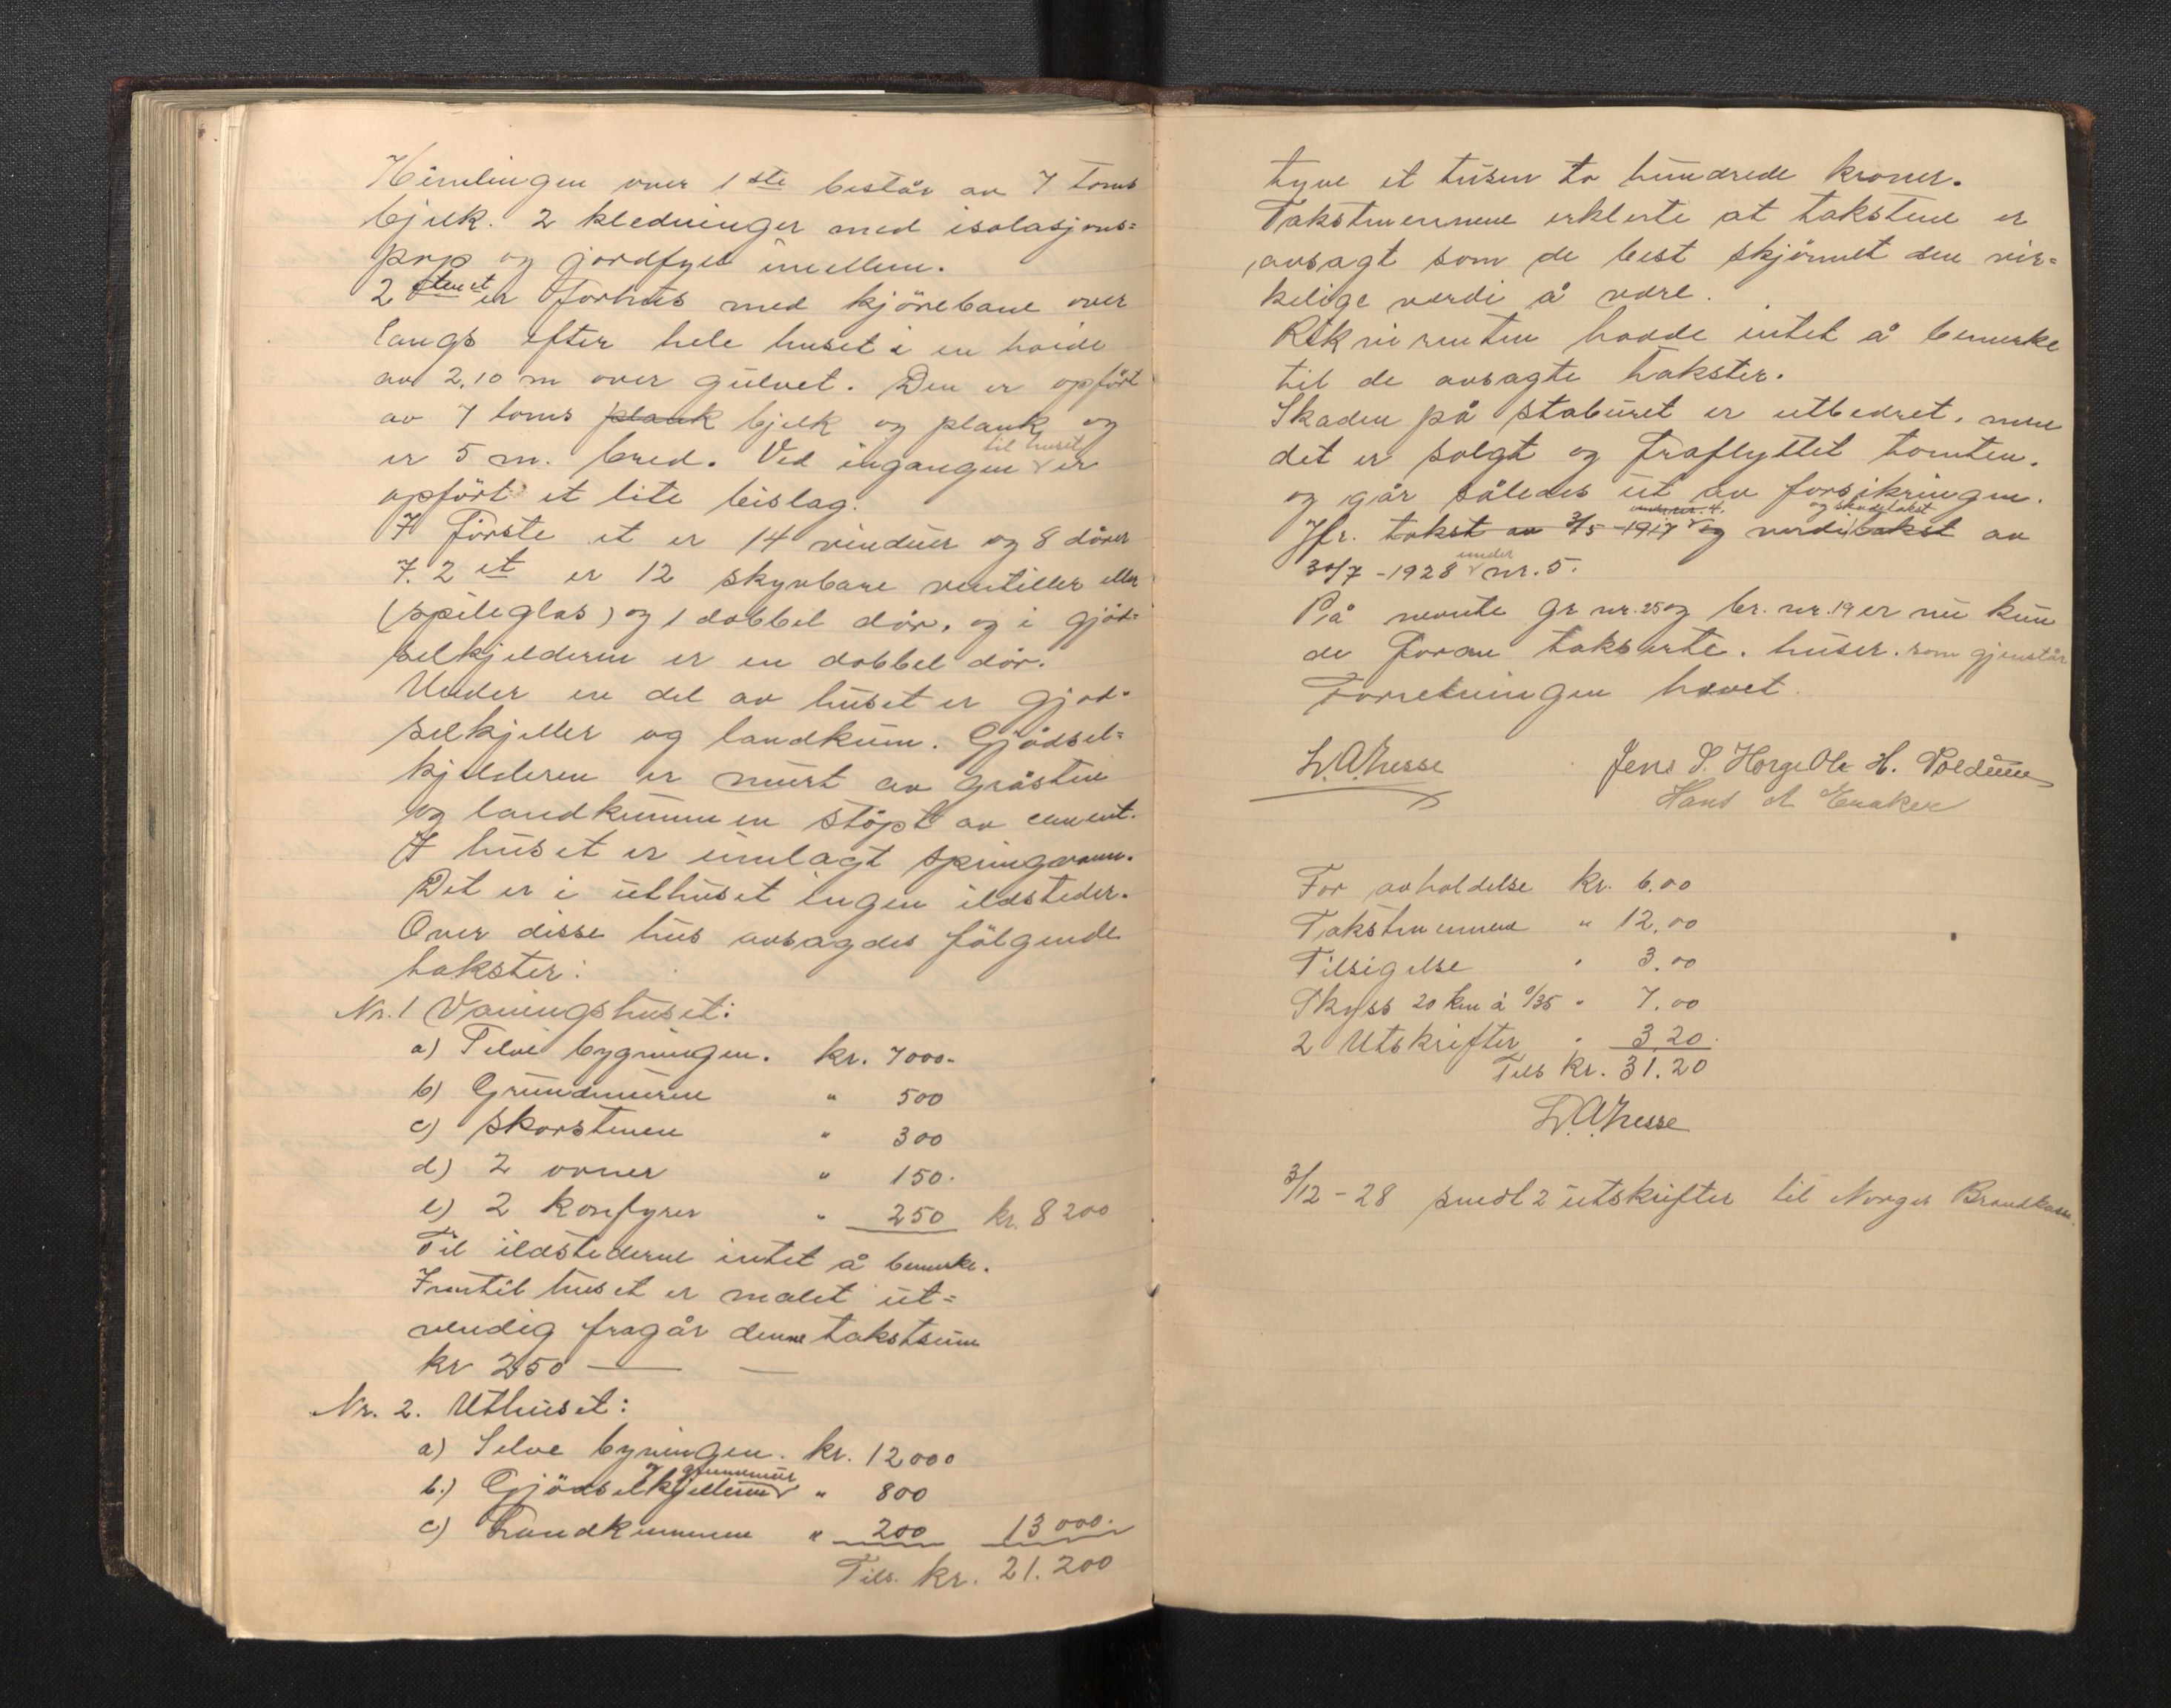 Himlingen over 1ste består av 7 toms
bjelk. 2 kledninger med isolasjons=
pap og jordfyll imellem.
2den et er forhus med kjörebane over
langs efter hele huset i en høide
av 2,10 m over gulvet. Den er opfört
av 7 toms plank bjelk og plank og
er 5 m. bred. Ved ingangen til huset er
opfört et lite bislag.
I Förste et er 14 vinduer og 8 dörer
I 2 et er 12 skyvbare ventiller eller
(spileglas) og 1 dobbel dör, og i gjöd=
selkjelderen er en dobbel dör.
Under en del av huset er gjöd=
selkjeller og landkum. Gjödsel=
kjelderen er murt av gråsten
og landkummen stöpt av cement.
I huset er innlagt springvann.
Det er i uthuset ingen ildsteder.
Over disse hus avsagdes fölgende
takster:
Nr. 1 Våningshuset:
a) Selve bygningen. kr. 7000-
b) Grundmuren " 500
c) Skorstenen " 300
d) 2 ovner " 150.
e) 2 Komfyrer " 250 kr. 8200
Til ildstederne intet å bemerke.
Inntil huset er malet ut=
vendig fragår denne takstsum
kr 250 —
Nr. 2. Uthuset:
a) Selve bygningen. kr. 12000
b.) Gjödselkjelleren og grunnmur " 800
c) Landkummen " 200 13000.
Tils. kr. 21.200
tyve et tusen to hundrede kroner.
Takstmennene erklerte at takstene er
avsagt som de best skjönnet den vir=
kelige verdi å være.
Rekvirenten hadde intet å bemerke
til de avsagte takster.
Skaden på staburet er utbedret, men
det er solgt og fraflyttet tomten.
og går således ut av forsikringen.
Jfr. takst av 3/5-1917 under nr. 4. og verdi og skadetakst av
30/7-1928 under nr. 5.
På nevnte Gr nr. 25 og br. nr. 19 er nu kun
de foran takserte. huser. som gjenstår
Forretningen hevet.
L.A. Nesse Jens S. Horge Ole H. Soldum
Hans A Eraker
For avholdelse kr. 6.00
Takstmennene " 12.00
Tilsigelse " 3.00
Skyss 20 km à 0/35 " 7.00
2 Utskrifter " 3.20
Tils kr. 31.20
L.A. Nesse
3/12-28 sendt 2 utskrifter til Norges Brandkasse.